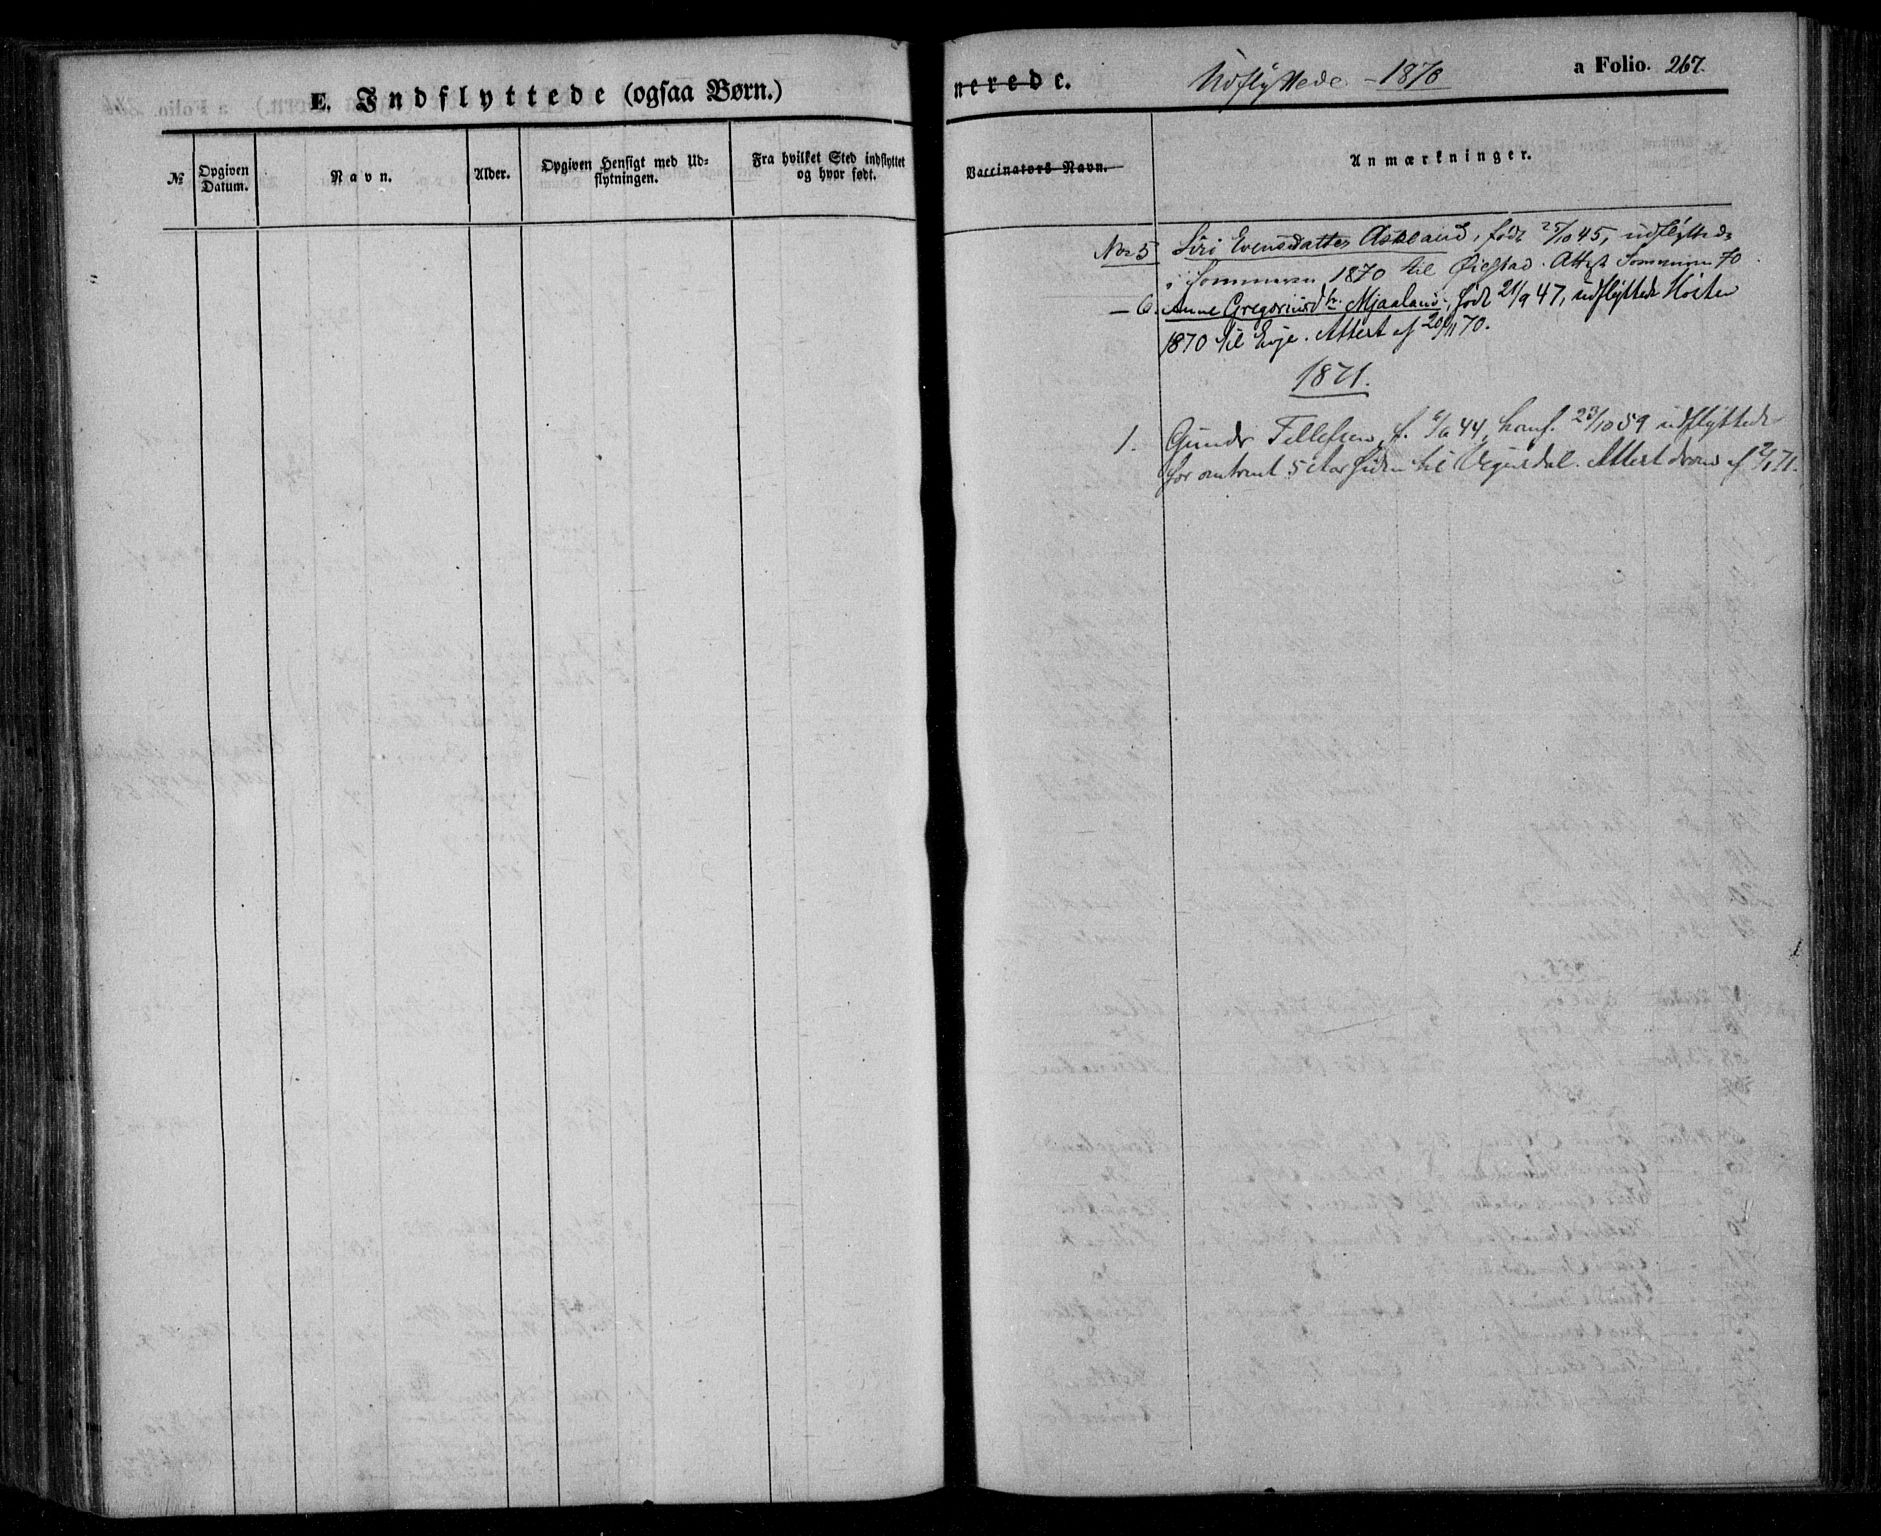 E. Indflyttede (ogsaa Børn.)
№
Opgiven
Datum.
Navn.
Alder.
Opgiven Hensigt med Ud-
flytningen.
Fra hvilket Sted indflyttet
og hvor født.
nerede. Udflyttede - 1870 a Folio. 267.
Vaccinators Navn.
Anmærkninger.
No 5 Siri Evensdatter Askland, født 25/10 45, udflyttede
i Sommeren 1870 til Øiestad. Attest Sommeren 70.
- 6. Anne Gregoriusd tr. Mjaaland, født 21/9 47, udflyttede Høsten
1870 til Evje. Attest af 20/11 70.
1871.
1. Gunder Tellefsen, f. 6/6 44, konf. 23/10 59 udflyttede
for omtrent 5 Aar siden til Vegusdal. Attest derom af 2/1 71.